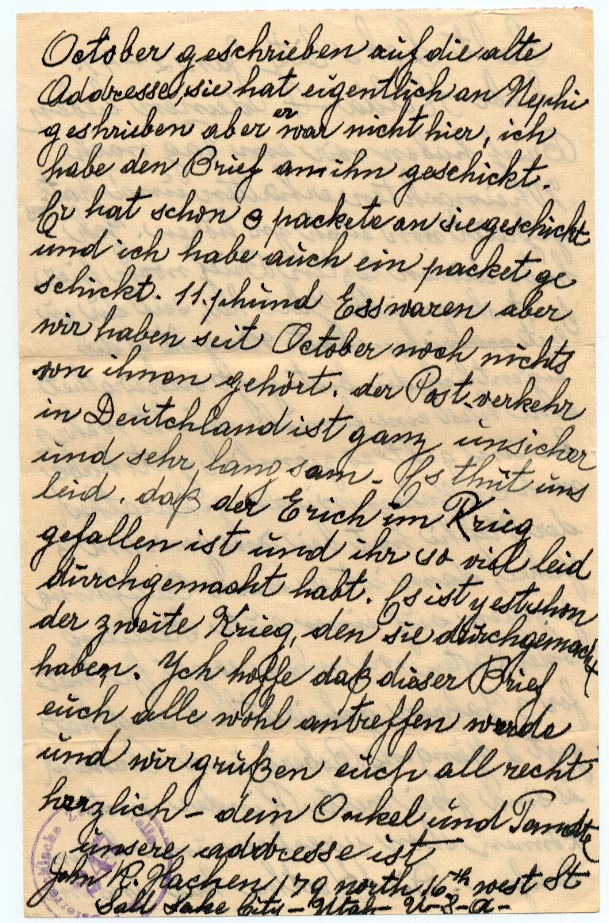 October geschrieben auf die alte
Addresse, sie hat eigentlich an Nephi
geshrieben aber er war nicht hier, ich
habe den Brief am ihn geschickt.
Er hat schon 3 packete an sie geschickt
und ich habe auch ein packet ge
schickt. 11. phund Esswaren aber
wir haben seit October noch nichts
von ihnen gehört. der Post-verkehr
in Deutchland ist ganz unsicher
und sehr langsam - Es thut uns
leid, daß der Erich im Krieg
gefallen ist und ihr so viel leid
durchgemacht habt. Es ist yest shon
der zweite Krieg, den sie durchgemacht
haben. Ych hoffe daß dieser Brief
euch alle wohl antreffen werde
und wir grüßen euch all recht
herzlich - dein Onkel und Tandte
unsere addresse ist
John Hachen 179 north 16th west St
Salt Lake City - Utah - U-S-A-